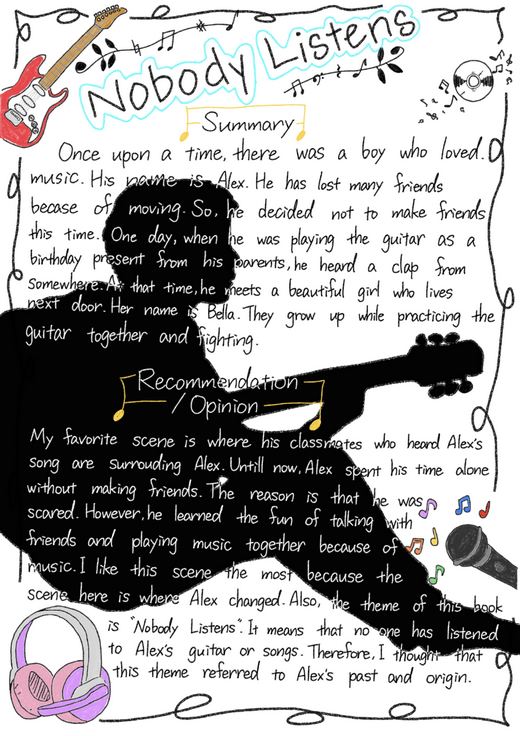 Nobody Listens
Summary
Once upon a time, there was a boy who loved.
music. His name is Alex. He has lost many friends
becase of moving. So, he decided not to make friends
this time. One day, when he was playing the guitar as a
birthday present from his parents, he heard a clap from
somewhere. At that time, he meets a beautiful girl who lives
next door. Her name is Bella. They grow up while practicing the
guitar together and fighting.
Recommendation
/ Opinion
My favorite scene is where his classmates who heard Alex's
song are surrouding Alex. Untill now, Alex spent his time alone
without making friends. The reason is that he was
scared. However, he learned the fun of talking with
friends and playing music together because of
music. I like this scene the most because the
scene here is where Alex changed. Also, the theme of this book
is "Nobody Listens". It means that no one has listened
to Alex's guitar or songs. Therefore, I thought that
this theme referred to Alex's past and origin.